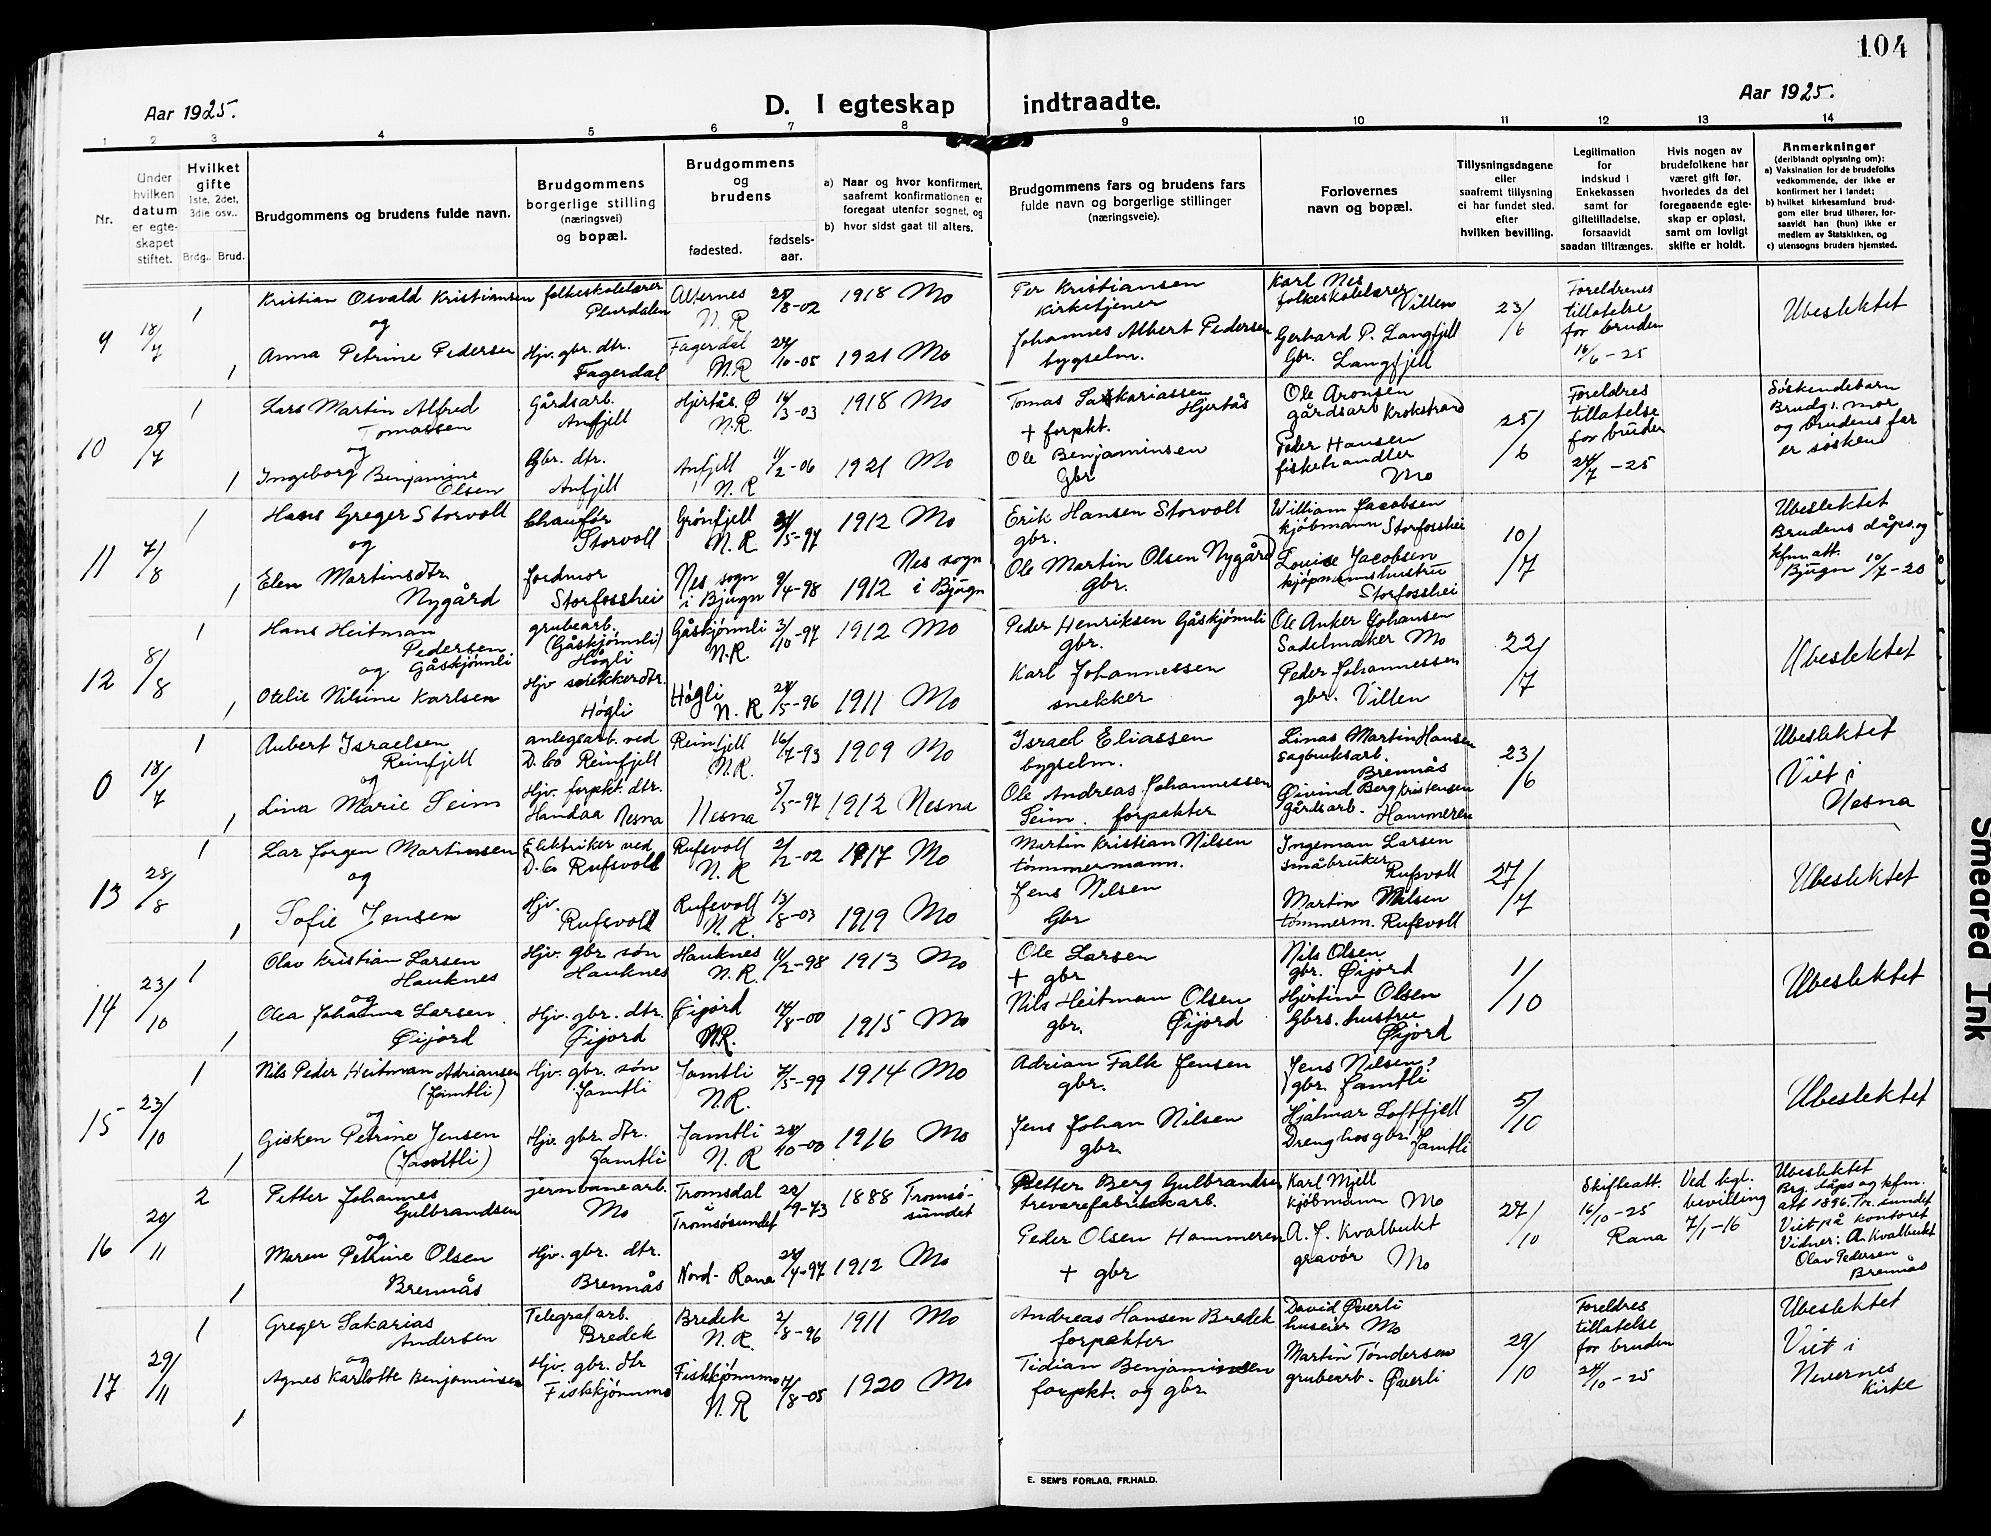 104
Aar 1925.
D. I egteskap indtraadte.
Aar 1925.
1 2 3 4 5 6 7 8 9 10 11 12 13 14
Nr.
Under hvilken datum er egteskapet stiftet.
Hvilket gifte 1ste, 2det, 3die osv..
Brdg.. Brud.
Brudgommens og brudens fulde navn.
Brudgommens borgerlige stilling (næringsvei) og bopæl.
Brudgommens og brudens
fødested. fødselsaar.
a) Naar og hvor konfirmert, saafremt konfirmationen er foregaat utenfor sognet, og
b) hvor sidst gaat til alters.
Brudgommens fars og brudens fars fulde navn og borgerlige stillinger (næringsveie).
Forlovernes navn og bopæl.
Tillysningsdagene eller saafremt tillysning ei har fundet sted. efter hvilken bevilling.
Legitimation for indskud i Enkekassen samt for giftetilladelse, forsaavidt saadan tiltrænges.
Hvis nogen av brudefolkene har været gift før, hvorledes da det foregaaende egteskap er opløst, samt om lovligt skifte er holdt.
Anmerkninger (deriblandt oplysning om):
a) Vaksination for de brudefolks vedkommende, der ikke er konfirmert her i landet;
b) hvilket kirkesamfund brudgom eller brud tilhører, forsaavidt han (hun) ikke er medlem av Statskirken, og
c) utensogns bruders hjemsted.
9 18/7 1 Kristian Osvald Kristiansen folkeskolelærer Plurdalen Alternes N. R 8-02 1918 Mo Per Kristiansen kirketjener Karl Nes folkeskolelærer Villen 23/6 Foreldrenes tillatelse for bruden 16/6-25 Ubeslektet
og
1 Anna Petrine Pedersen Hjv. gbr. dtr. Fagerdal Fagerdal N.R 10-05 1921 Mo Johannes Albert Pedersen bygselm. Gerhard P. Langfjell Gbr. Langfjell
10 25/7 1 Lars Martin Alfred Tomassen Gårdsarb. Anfjell Hjertås. Ø N.R. 3-03 1918 Mo Tomas Sakariassen Hjertås + forpkt. Ole Aronsen gårdsarb Krokstrand 25/6 Foreldres tillatelse for bruden 24/7-25 Søskendebarn Brudg. mor og brudens far er søsken
og
1 Ingeborg Benjamine Olsen Gbr. dtr. Anfjell Anfjell N. R 11/2-06 1921 Mo Ole Benjaminsen Gbr Peder Hansen fiskehandler Mo
11 7/8 1 Hans Greger Storvoll Chaufør Storvoll Grønfjell N. R 5-97 1912 Mo Erik Hansen Storvoll gbr. William Jacobsen kjøbmann Storfosshei 10/7 Ubeslektet Brudens dåps og kfm att. Bjugn 10/7-20
og
1 Elen Martinsdtr. Nygård Jordmor Storfosshei Nes sogn i Bjugn 9/4-98 1912 Nes sogn i Bjugn Ole Martin Olsen Nygård Gbr. Louise Jacobsen kjøpmannshustru Storfosshei
12 8/8 1 Hans Heitman Pedersen Gåskjønli grubearb. (Gåskjønli) Høgli Gåskjønli N.R. 3/10-97 1912 Mo Peder Henriksen Gåskjønli gbr. Ole Anker Johansen Sadelmaker Mo 22/7 Ubeslektet
og
1 Otelie Nilsine Karlsen Hjv snekkerdtr. Høgli Høgli N. R 5-96 1911 Mo Karl Johannessen snekker Peder Johannessen gbr. Villen
0 18/7 1 Aubert Israelsen Reinfjell anlegsarb. ved D. Co Reinfjell Reinfjell N.R. 16/7-93 1909 Mo Israel Eliassen bygselm. Linas Martin Hansen sagbruksarb. Brennås 23/6 Ubeslektet Viet i Nesna
og
1 Lina Marie Seim Hjv. forpkt. dtr. Handaa Nesna Nesna 5/5-97 1912 Nesna Ole Andreas Johannessen Seim. forpakter Øivind Berg Kristensen gårdsarb - Hammeren
13 28/8 1 Lar Jørgen Martinsen Elektriker ved D. Co Rufsvoll Rufsvoll N. R 2/2-02 1917 Mo Martin Kristian Nilsen tømmermann. Ingeman Larsen småbruker Rufsvoll 27/7 Ubeslektet
og
1 Sofie Jensen Hjv. Rufsvoll Rufsvoll N. R. 13/8-03 1919 Mo Jens Nilsen Gbr Martin Nilsen tømmerm. Rufsvoll
14 23/10 1 Olav Kristian Larsen Hauknes Hjv. gbr. søn Hauknes Hauknes N. R. 11/2-98 1913 Mo Ole Larsen + gbr Nils Olsen gbr. Øijord 1/10 Ubeslektet
og
1 Olea Johanna Larsen Øijord Hjv. gbr. dtr. Øijord Øijord N.R. 8-00 1915 Mo Nils Heitman Olsen gbr. Øijord Hjertine Olsen Gbrs. hustru Øijord
15 23/10 1 Nils Peder Heitman Adriansen (Jamtli) Hjv. gbr. søn Jamtli Jamtli N.R. 5-99 1914 Mo Adrian Falk Jensen gbr. Jens Nilsen? gbr. Jamtli 5/10 Ubeslektet
og
1 Gisken Petrine Jensen (Jamtli) Hjv. gbr. dtr. Jamtli Jamtli N. R 10-00 1916 Mo Jens Johan Nilsen gbr. Hjalmar Loftfjell Dreng hos gbr. Jamtli
16 20/11 2 Petter Johannes Gulbrandsen jernbanearb. Mo Tromsdal i Tromsøsundet 9-73 1888 Tromsøsundet Petter Berg Gulbrandsen trevarefabrikkarb. Karl Mjell kjøbmann Mo 27/10 Skifteatt. 16/10-25 Rana Ved kgl. bevilling 7/1-16 Ubeslektet Brg. dåps og kfm. att 1896. Tr. sundet Viet på kontoret Vidner: A. Kvalbukt Olav Pedersen Brennås
og
1 Maren Petrine Olsen Brennås Hjv. gbr. dtr. Brennås Nord-Rana 4-97 1912 Mo Peder Olsen Hammeren + gbr A. J. Kvalbukt gravør Mo
17 29/11 1 Greger Sakarias Andersen Telegrafarb. Bredek Bredek N. R. 2/8-96 1911 Mo Andreas Hansen Bredek forpakter David Øverli huseier Mo 29/10 Foreldres tillatelse for bruden 24/10-25 Ubeslektet Viet i Nevernes kirke
og
1 Agnes Karlotte Benjaminsen Hjv. gbr. dtr Fiskkjønmo Fiskkjønmo N. R 8-05 1920 Mo Tidian Benjaminsen forpkt. og gbr. Martin Tøndersen grubearb - Øverli
E. SEM'S FORLAG, FR.HALD.
Smeared Ink